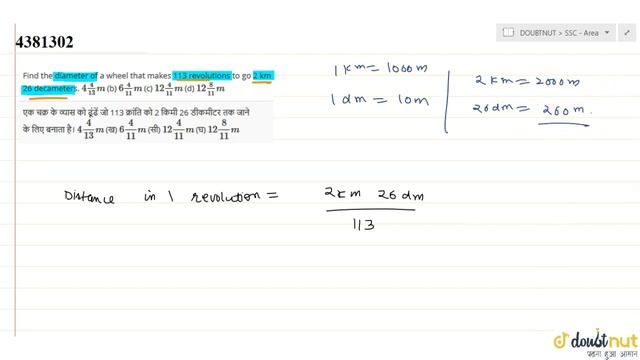 DOUBTNUT > SSC - Area
4381302
Find the diameter of a wheel that makes 113 revolutions to go 2 km
26 decameters. 4 4/13 m (b) 6 4/11 m (c) 12 4/11 m (d) 12 8/11 m
एक चक्र के व्यास को ढूंढें जो 113 क्रांति को 2 किमी 26 डीकमीटर तक जाने
के लिए बनाता है। 4 4/13 m (ख) 6 4/11 m (सी) 12 4/11 m (घ) 12 8/11 m
1 km = 1000 m
1 dm = 10m
2 km = 2000 m
26 dm = 260 m.
Distance in 1 revolution = 2km 26 dm
113
doubtnut
पढ़ना हुआ आसान